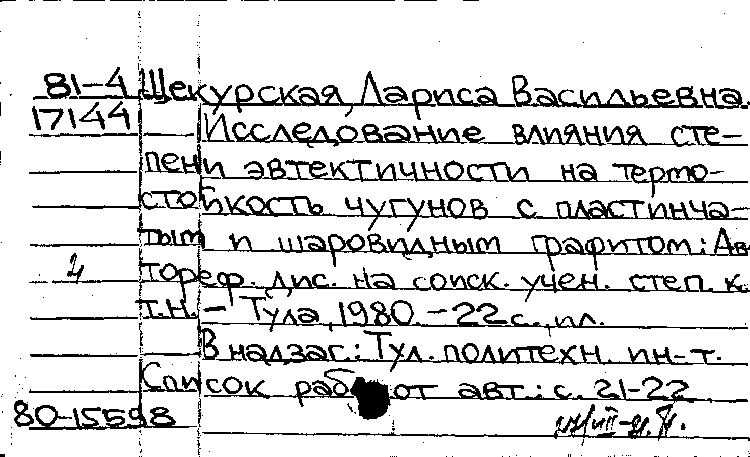 81-4 Щекурская, Лариса Васильевна.
17144 Исследование влияния сте-
пени эвтектичности на термо-
стойкость чугунов с пластинча-
тым и шаровидным графитом: Ав-
тореф. дис. на соиск. учен. степ. к.
т.н. - Тула, 1980. - 22 с., ил.
В надзаг.: Тул. политехн. ин-т.
Список работ авт.: с. 21-22
80-15598